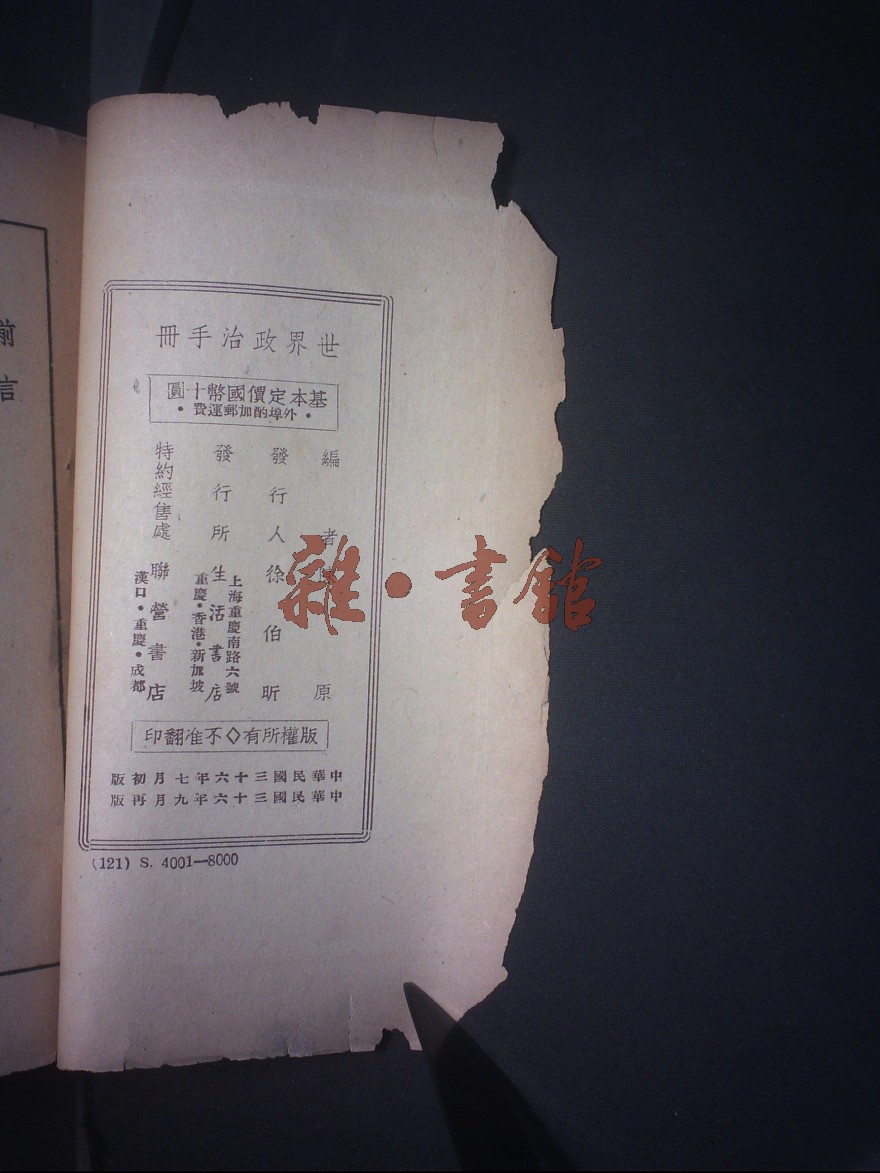 世界政治手冊
基本定價國幣十圓
•外埠酌加郵運費•
編者 原
發行人 徐伯昕
發行所 生活書店
上海重慶南路六號
重慶•香港•新加坡
特約經售處 聯營書店
漢口•重慶•成都
版權所有◇不准翻印
中華民國三十六年七月初版
中華民國三十六年九月再版
(121) S. 4001—8000
前言
雜•書館